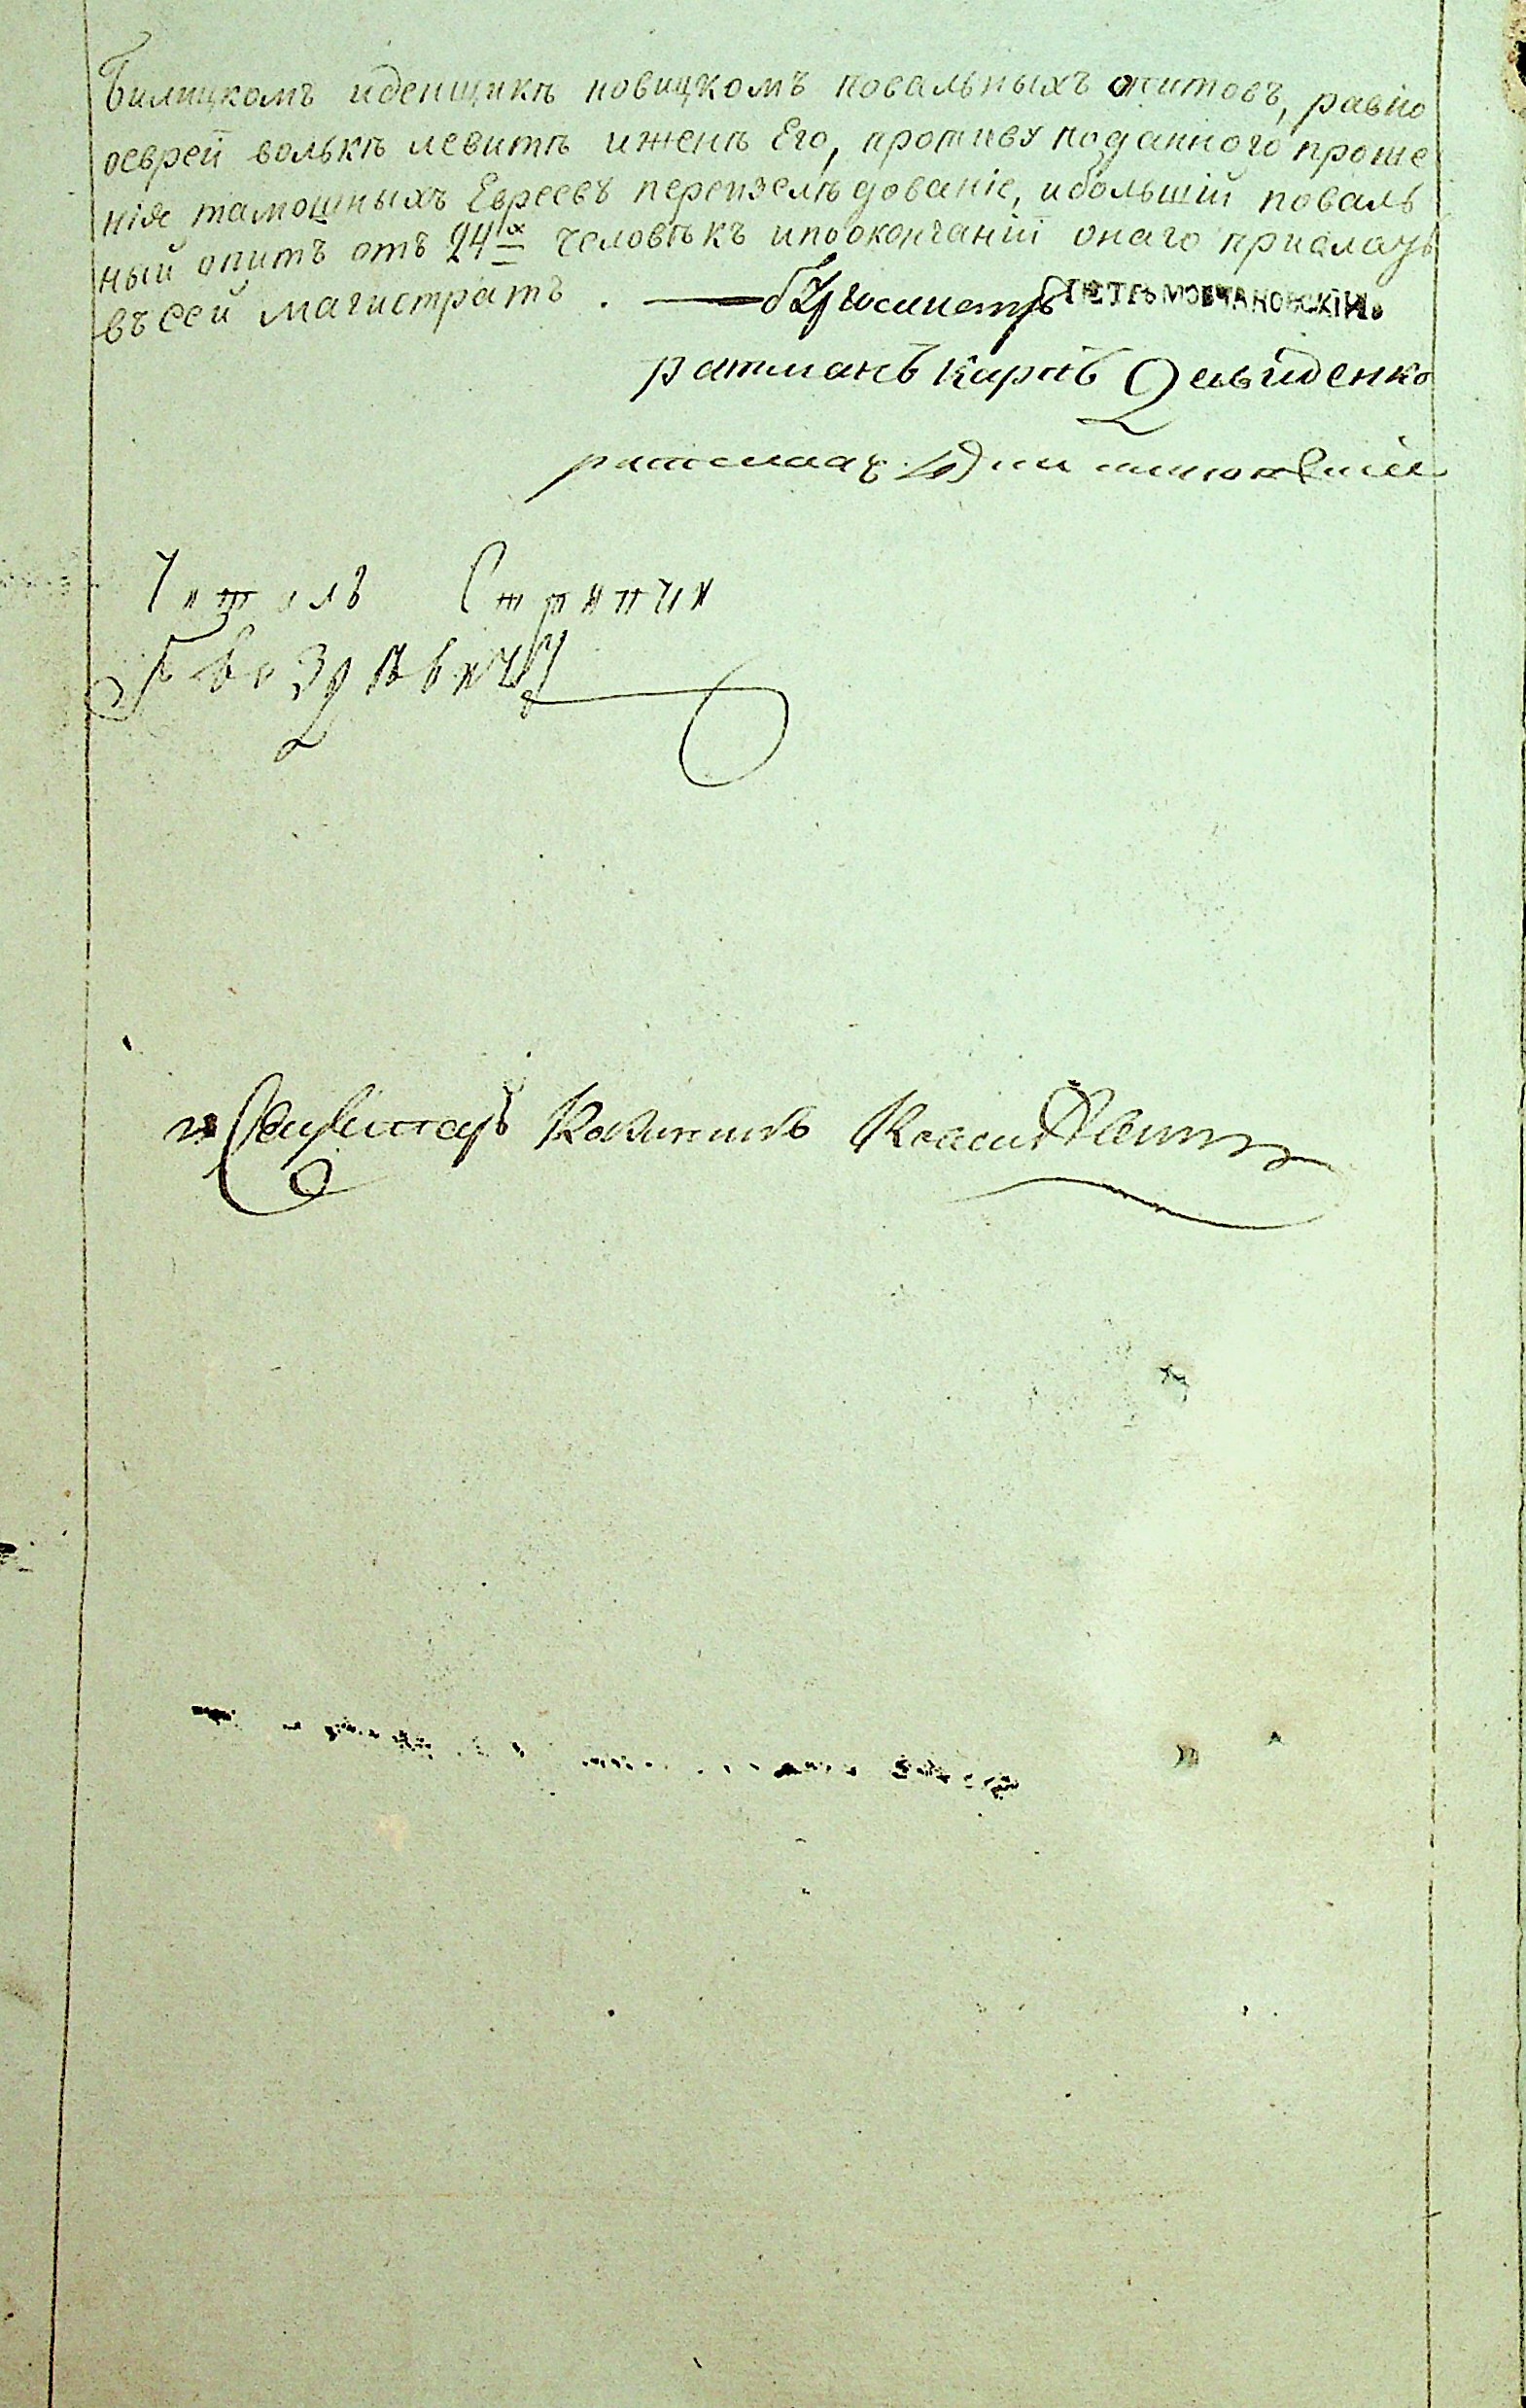 Билицкомъ иденщикѣ новицкомъ повальныхъ опитовъ, равно
оеврей волькѣ левитѣ иженѣ Его, противу поданного проше
нія тамошныхъ Евреевъ переизслѣдованіе, ибольшій поваль
ный опитъ отъ 24х человѣкъ ипоокончаніи онаго прислать
въ сей магистратъ.
бургоминстръ ПЕТРЪ МОВЧАНОВСКІЙ.
ратманъ карпъ Давиденко
ратманъ
Читалъ Стряпчи
Гвоздѣвичъ
Секретарь